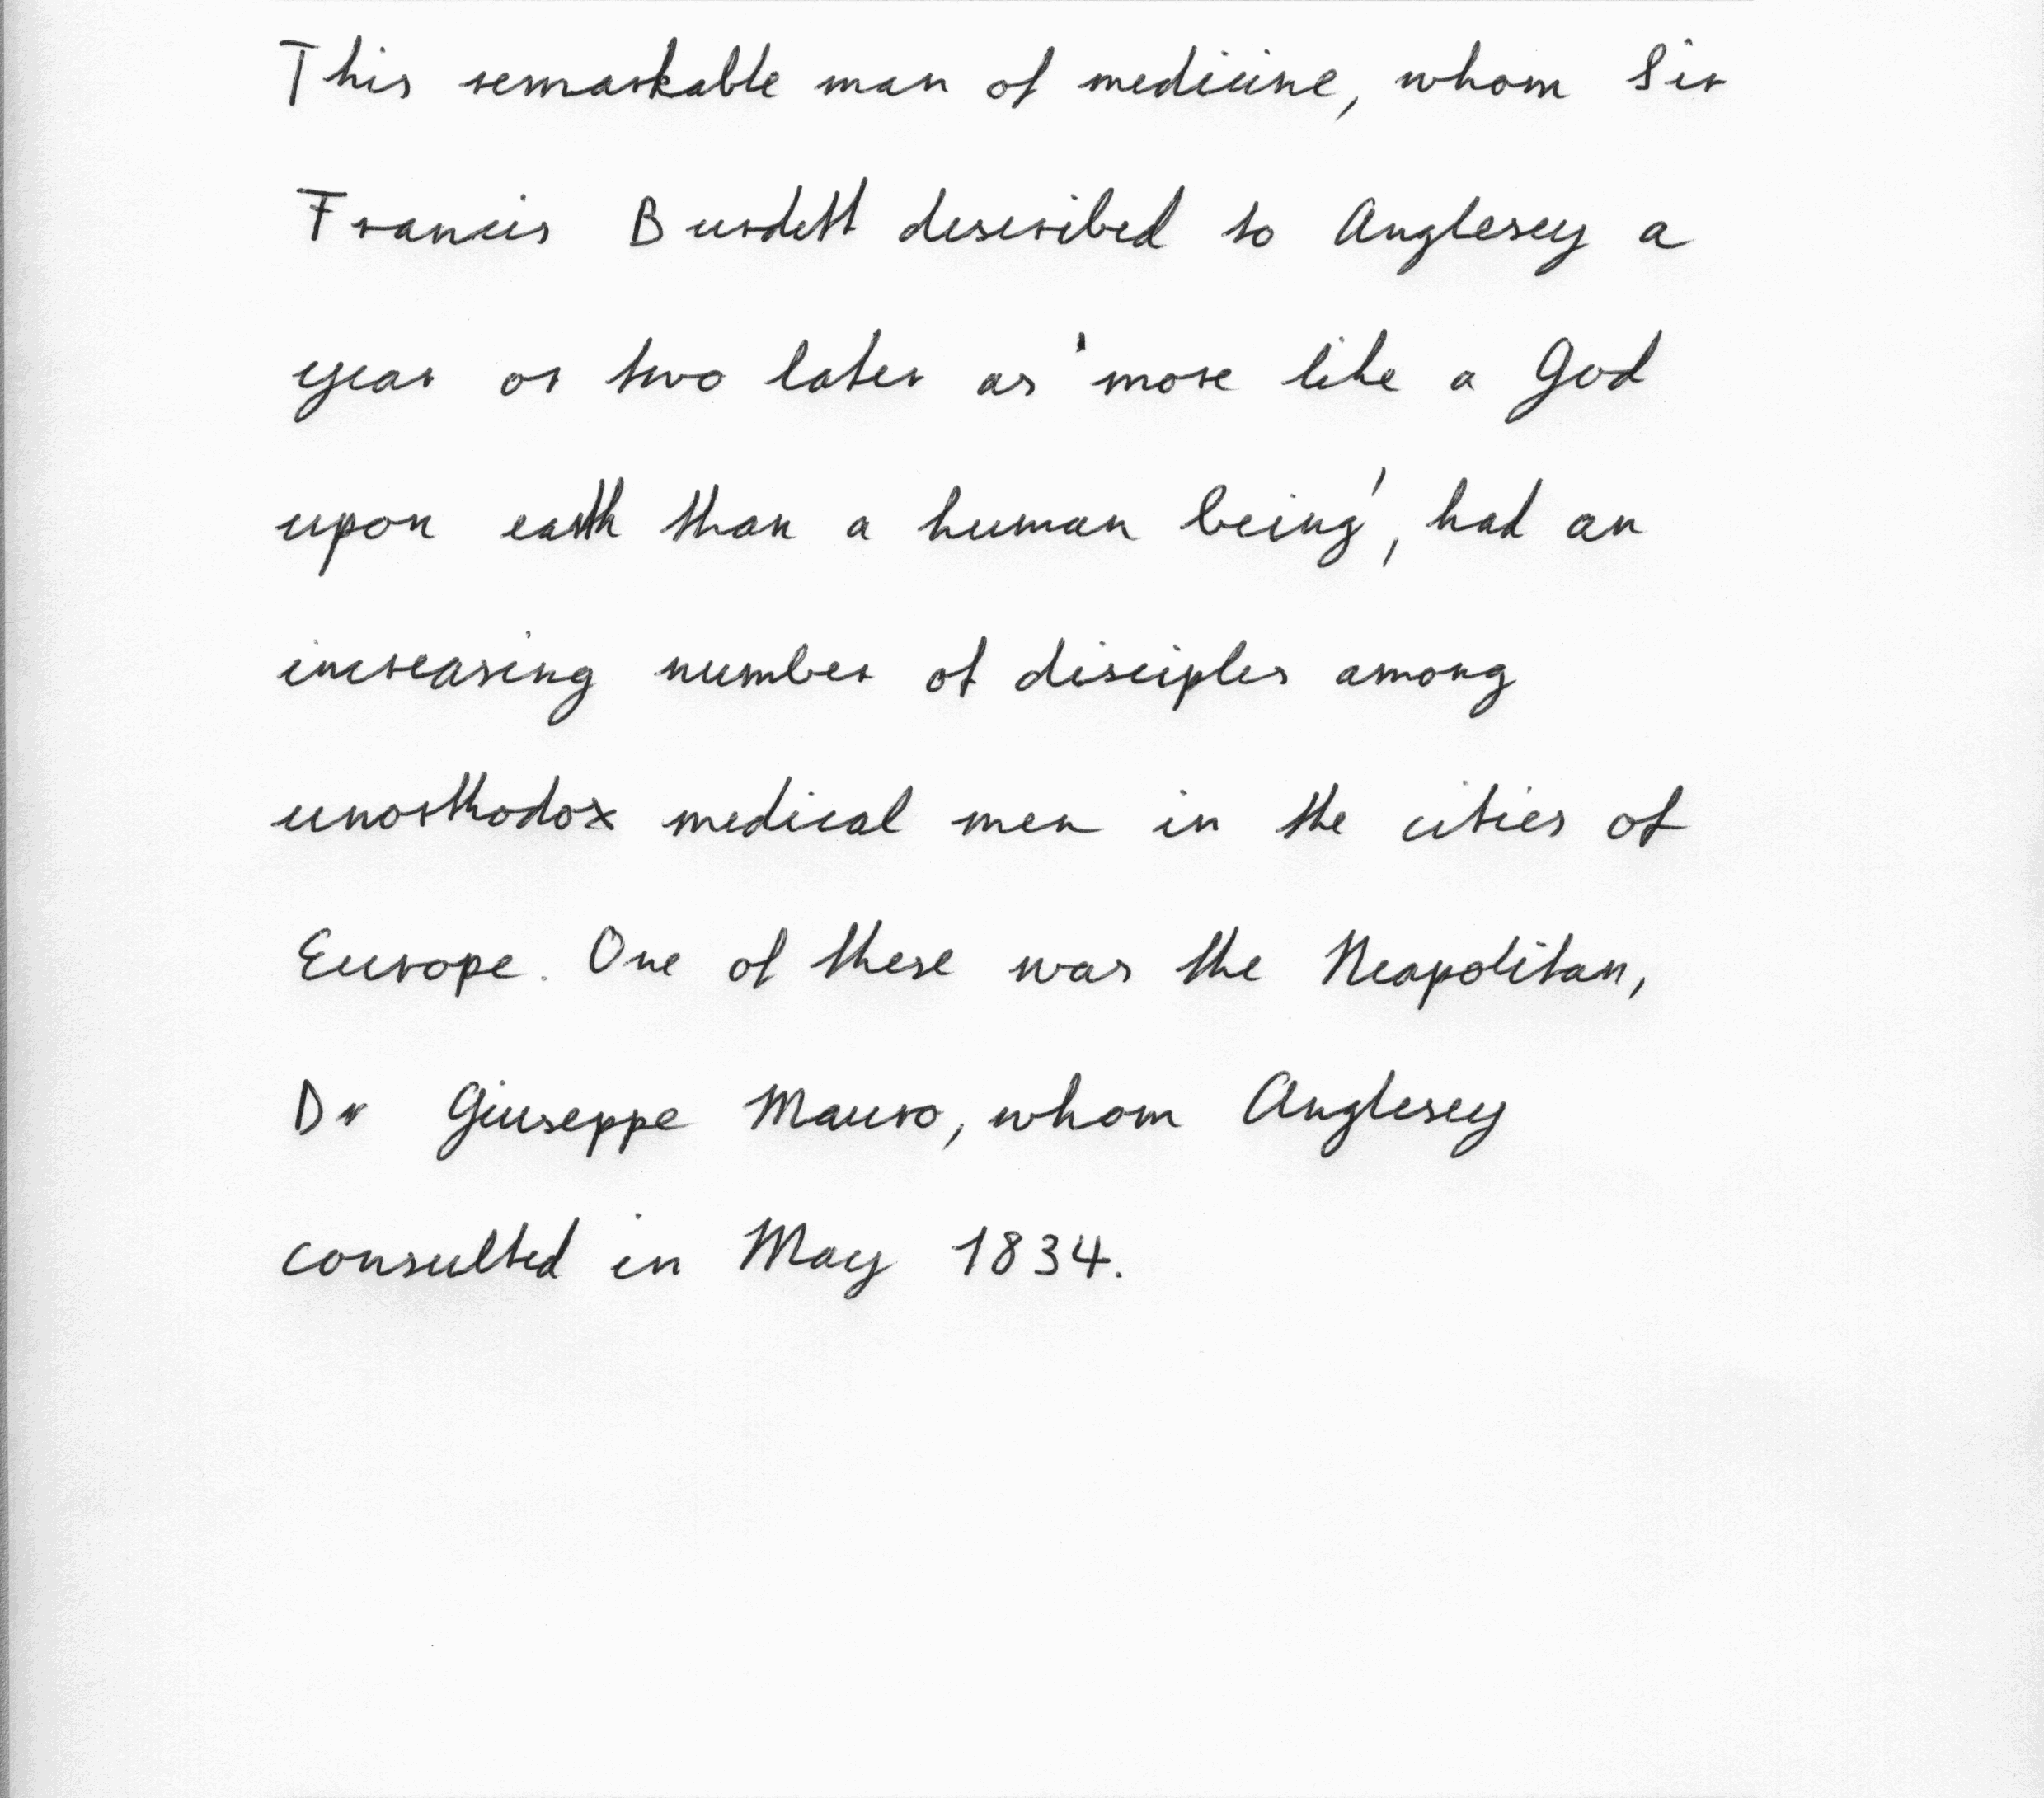 This remarkable man of medicine, whom Sir
Francis Burdett described to Anglesey a
year or two later as 'more like a God
upon earth than a human being', had an
increasing number of disciples among
unorthodox medical men in the cities of
Europe. One of these was the Neapolitan,
Dr Giuseppe Mauro, whom Anglesey
consulted in May 1834.